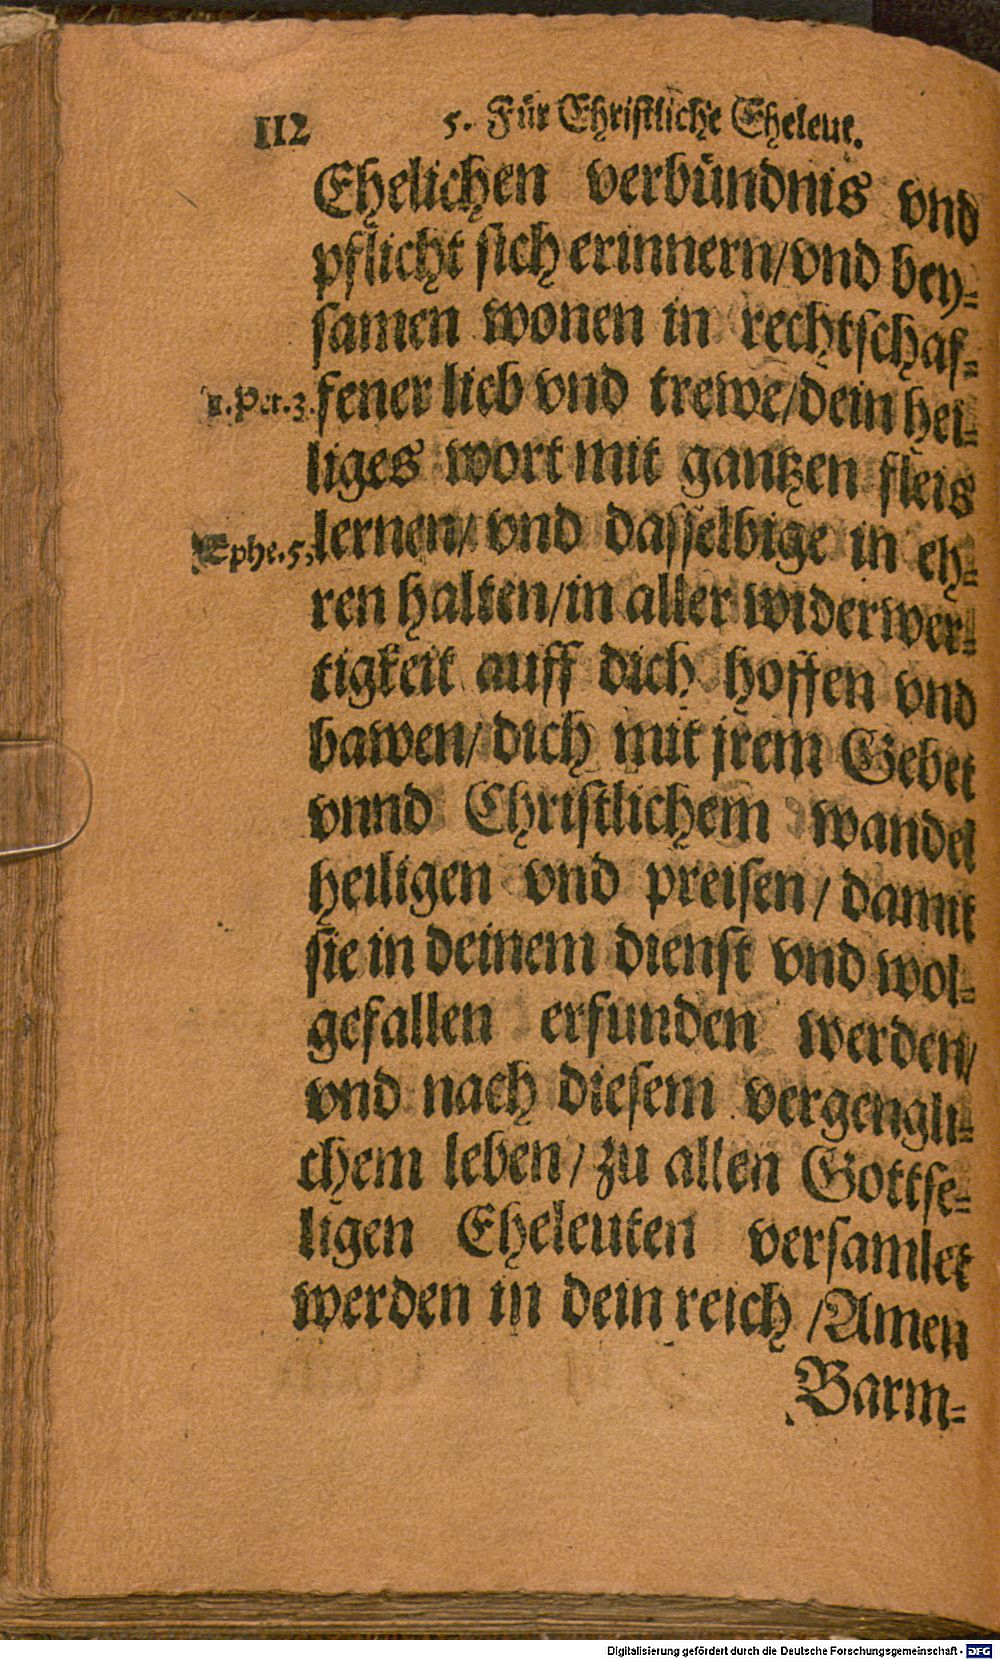 112 5. Für Christliche Eheleut.
Ehelichen verbündnis vnd
pflicht sich erinnern/vnd bey-
samen wonen in rechtschaf-
1.Pet.3. fener lieb vnd trewe/dein hei-
liges wort mit gantzen fleis
Ephe.5. lernen/ vnd dasselbige in eh-
ren halten/in aller widerwer-
tigkeit auff dich hoffen vnd
bawen/ dich mit jrem Gebet
vnnd Christlichem wandel
heiligen vnd preisen/ damit
sie in deinem dienst vnd wol-
gefallen erfunden werden/
vnd nach diesem vergengli-
chem leben/ zu allen Gottse-
ligen Eheleuten versamlet
werden in dein reich /Amen
Barm-
Digitalisierung gefördert durch die Deutsche Forschungsgemeinschaft - DFG